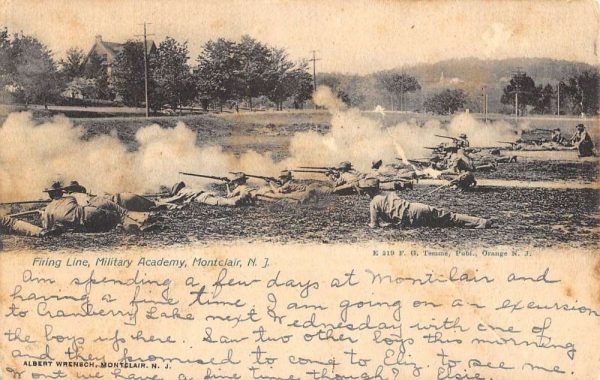 E 219 F. G. Temme, Publ., Orange N. J.
Firing Line, Military Academy, Montclair, N. J.
Am spending a few days at Montclair and
having a fine time. I am going on an excursion
to Cranberry Lake next Wednesday with one of
the boys up here. Saw two other boys this morning
and they promised to come to Eliz to see me.
ALBERT WRENSCH, MONTCLAIR, N. J.
Wont we have a fine time though? Elsie